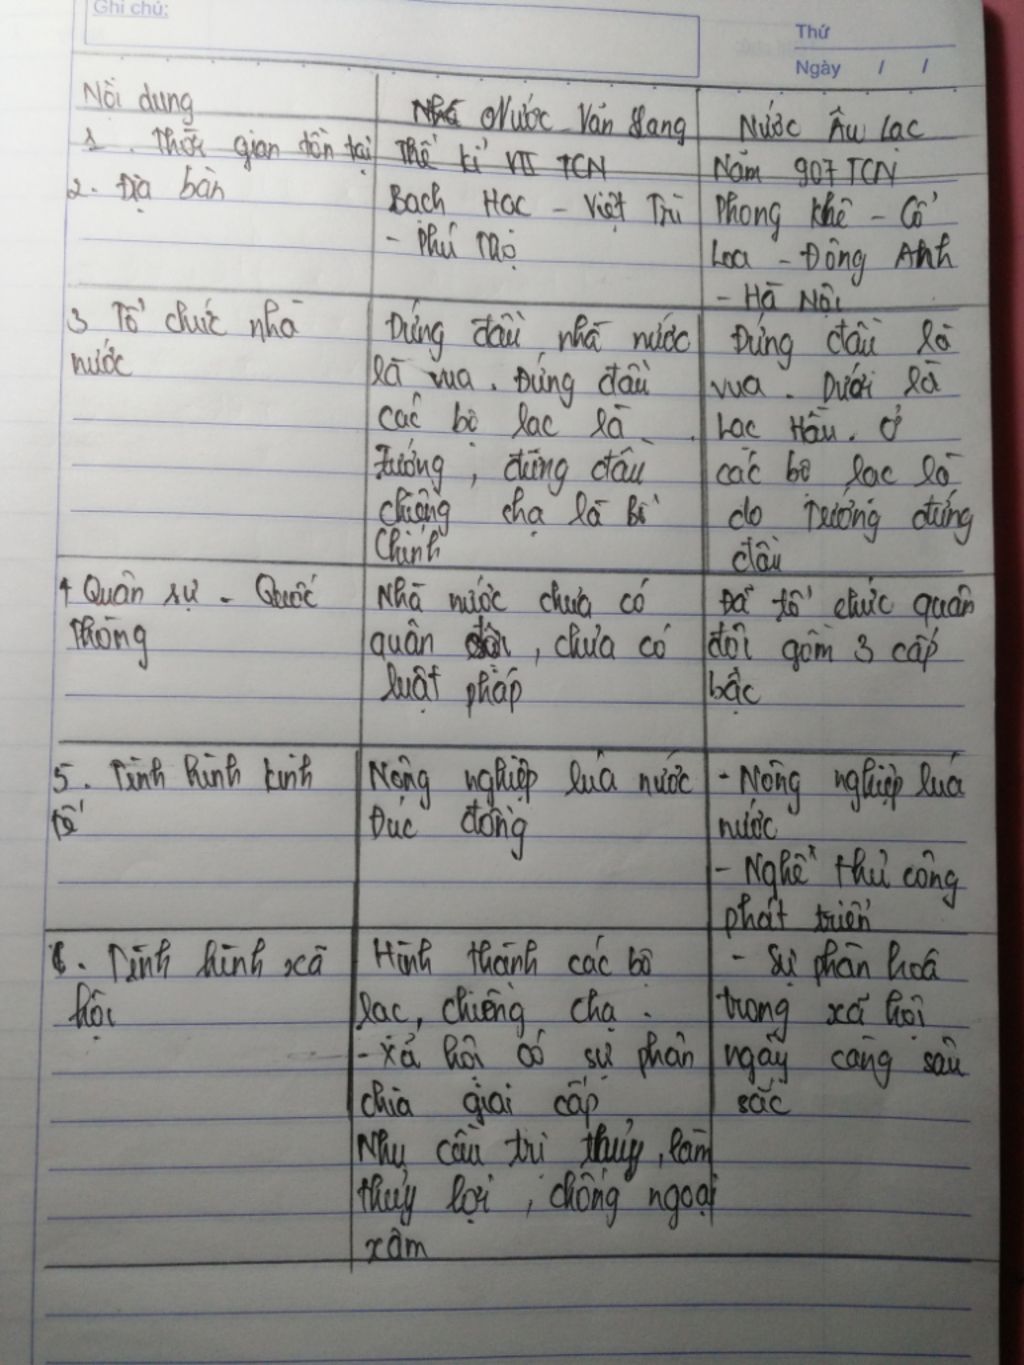 Ghi chú:
Thứ
Ngày / /
Nội dung
Nước Văn Lang
Nước Âu Lạc
1. Thời gian tồn tại
Thế kỉ VII TCN
Năm 907 TCN
2. Địa bàn
Bạch Hạc - Việt Trì
- Phú Thọ
Phong Khê - Cổ
Loa - Đông Anh
- Hà Nội
3 Tổ chức nhà
nước
Đứng đầu nhà nước
là vua. Đứng đầu
các bộ lạc là
tướng, đứng đầu
chiềng chạ là Bồ
Chính
Đứng đầu là
vua. Dưới là
Lạc Hầu. Ở
các bộ lạc là
do Tướng đứng
đầu
4 Quân sự - Quốc
Phòng
Nhà nước chưa có
quân đội, chưa có
luật pháp
Đã tổ chức quân
đội gồm 3 cấp
bậc
5. Tình hình kinh
tế
Nông nghiệp lúa nước
Đúc đồng
- Nông nghiệp lúa
nước
- Nghề thủ công
phát triển
6. Tình hình xã
hội
Hình thành các bộ
lạc, chiềng chạ.
- Xã hội có sự phân
chia giai cấp
Nhu cầu trị thủy, làm
thủy lợi, chống ngoại
xâm
- Sự phân hoá
trong xã hội
ngày càng sâu
sắc